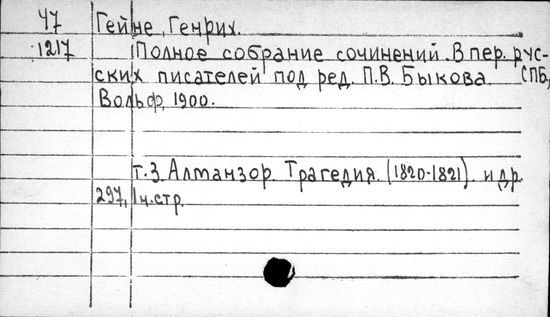 Ч7 Гейне, Генрих.
1217 Полное собрание сочинений. В пер. рус-
ских писателей под ред. П.В. Быкова. СПБ,
Вольф, 1900.
т.3. Алманзор. Трагедия. (1820-1821). и др.
297, 1ч.стр.